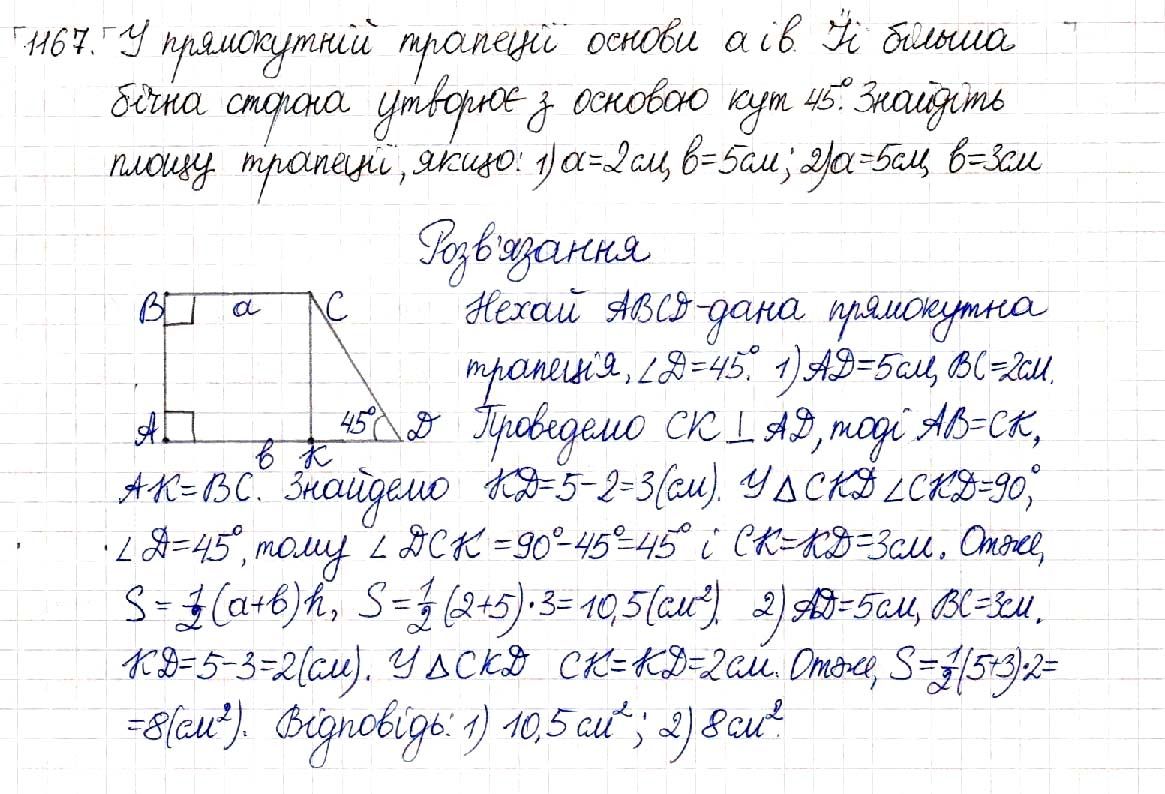 1167. У прямокутній трапеції основи a і b. Її більша
бічна сторона утворює з основою кут 45°. Знайдіть
площу трапеції, якщо: 1) a=2см, b=5см; 2) a=5см, b=3см
Розв'язання
B a C
45°
A b K D
Нехай ABCD-дана прямокутна
трапеція, ∠D=45°. 1) AD=5см, BC=2см.
Проведемо CK⊥AD, тоді AB=CK,
AK=BC. Знайдемо KD=5-2=3(см). У △CKD ∠CKD=90°,
∠D=45°, тому ∠DCK=90°-45°=45° і CK=KD=3см. Отже,
S=1/2(a+b)h, S=1/2(2+5)·3=10,5(см²). 2) AD=5см, BC=3см.
KD=5-3=2(см). У △CKD CK=KD=2см. Отже, S=1/2(5+3)·2=
=8(см²). Відповідь: 1) 10,5см²; 2) 8см².